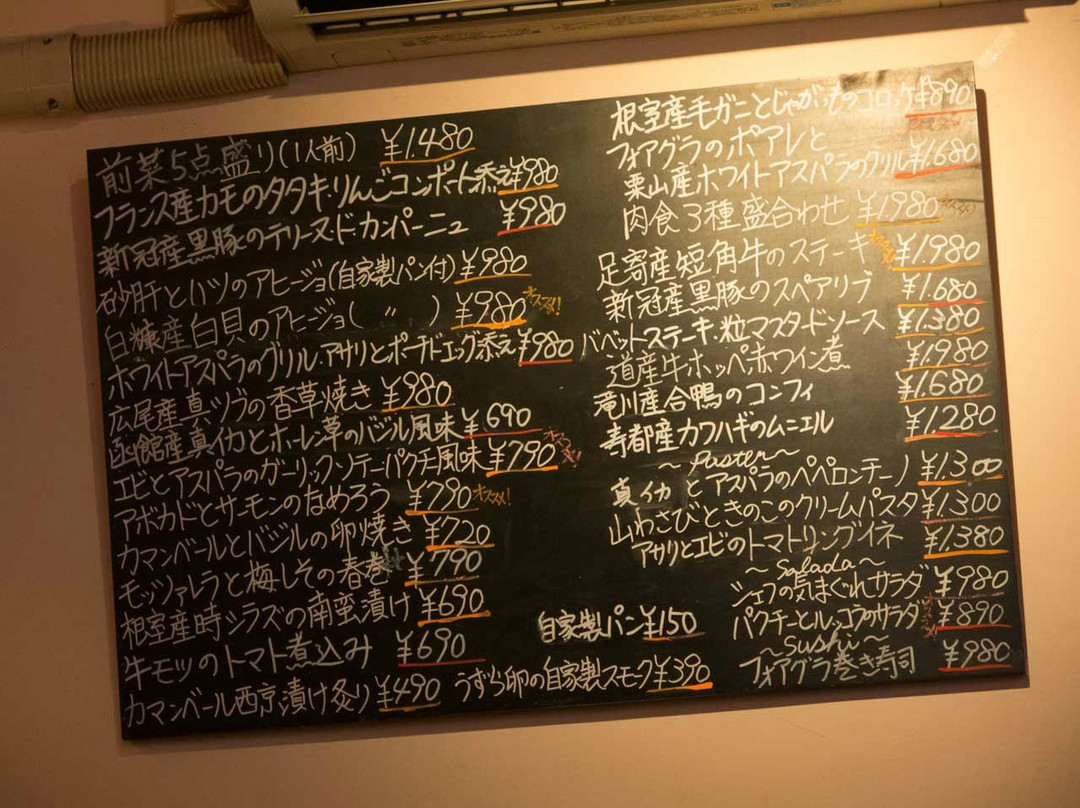 前菜5点盛り(1人前) ¥1.480
フランス産カモのタタキ・りんごコンポート添え ¥980
新冠産黒豚のテリーヌ・ド・カンパーニュ ¥980
砂肝とハツのアヒージョ(自家製パン付) ¥980
白糠産白貝のアヒージョ( 〃 ) ¥980 オススメ!
ホワイトアスパラのグリル・アサリとポーチドエッグ添え ¥980
広尾産真ツブの香草焼き ¥980
函館産真イカとホーレン草のバジル風味 ¥690
エビとアスパラのガーリックソテーパクチー風味 ¥790 オススメ!
アボカドとサーモンのなめろう ¥790 オススメ!
カマンベールとバジルの卵焼き ¥720
モッツァレラと梅しその春巻 ¥790
根室産時シラズの南蛮漬け ¥690
牛モツのトマト煮込み ¥690
カマンベール西京漬け炙り ¥490
自家製パン ¥150
うずら卵の自家製スモーク ¥390
根室産毛ガニとじゃがいものコロッケ ¥890
フォアグラのポアレと
栗山産ホワイトアスパラのグリル ¥1.680
肉食3種盛合わせ ¥1.980
足寄産短角牛のステーキ オススメ ¥1.980
新冠産黒豚のスペアリブ ¥1.680
バベットステーキ・粒マスタードソース ¥1.380
道産牛ホッペ赤ワイン煮 ¥1.980
滝川産合鴨のコンフィ ¥1.680
寿都産カワハギのムニエル ¥1.280
~ Paster ~
真イカとアスパラのペペロンチーノ ¥1.300
山わさびときのこのクリームパスタ ¥1.300
アサリとエビのトマトリングイネ ¥1.380
~ Salada ~
シェフの気まぐれサラダ ¥980
パクチーとルッコラのサラダ オススメ! ¥890
~ Sushi ~
フォアグラ巻き寿司 ¥980